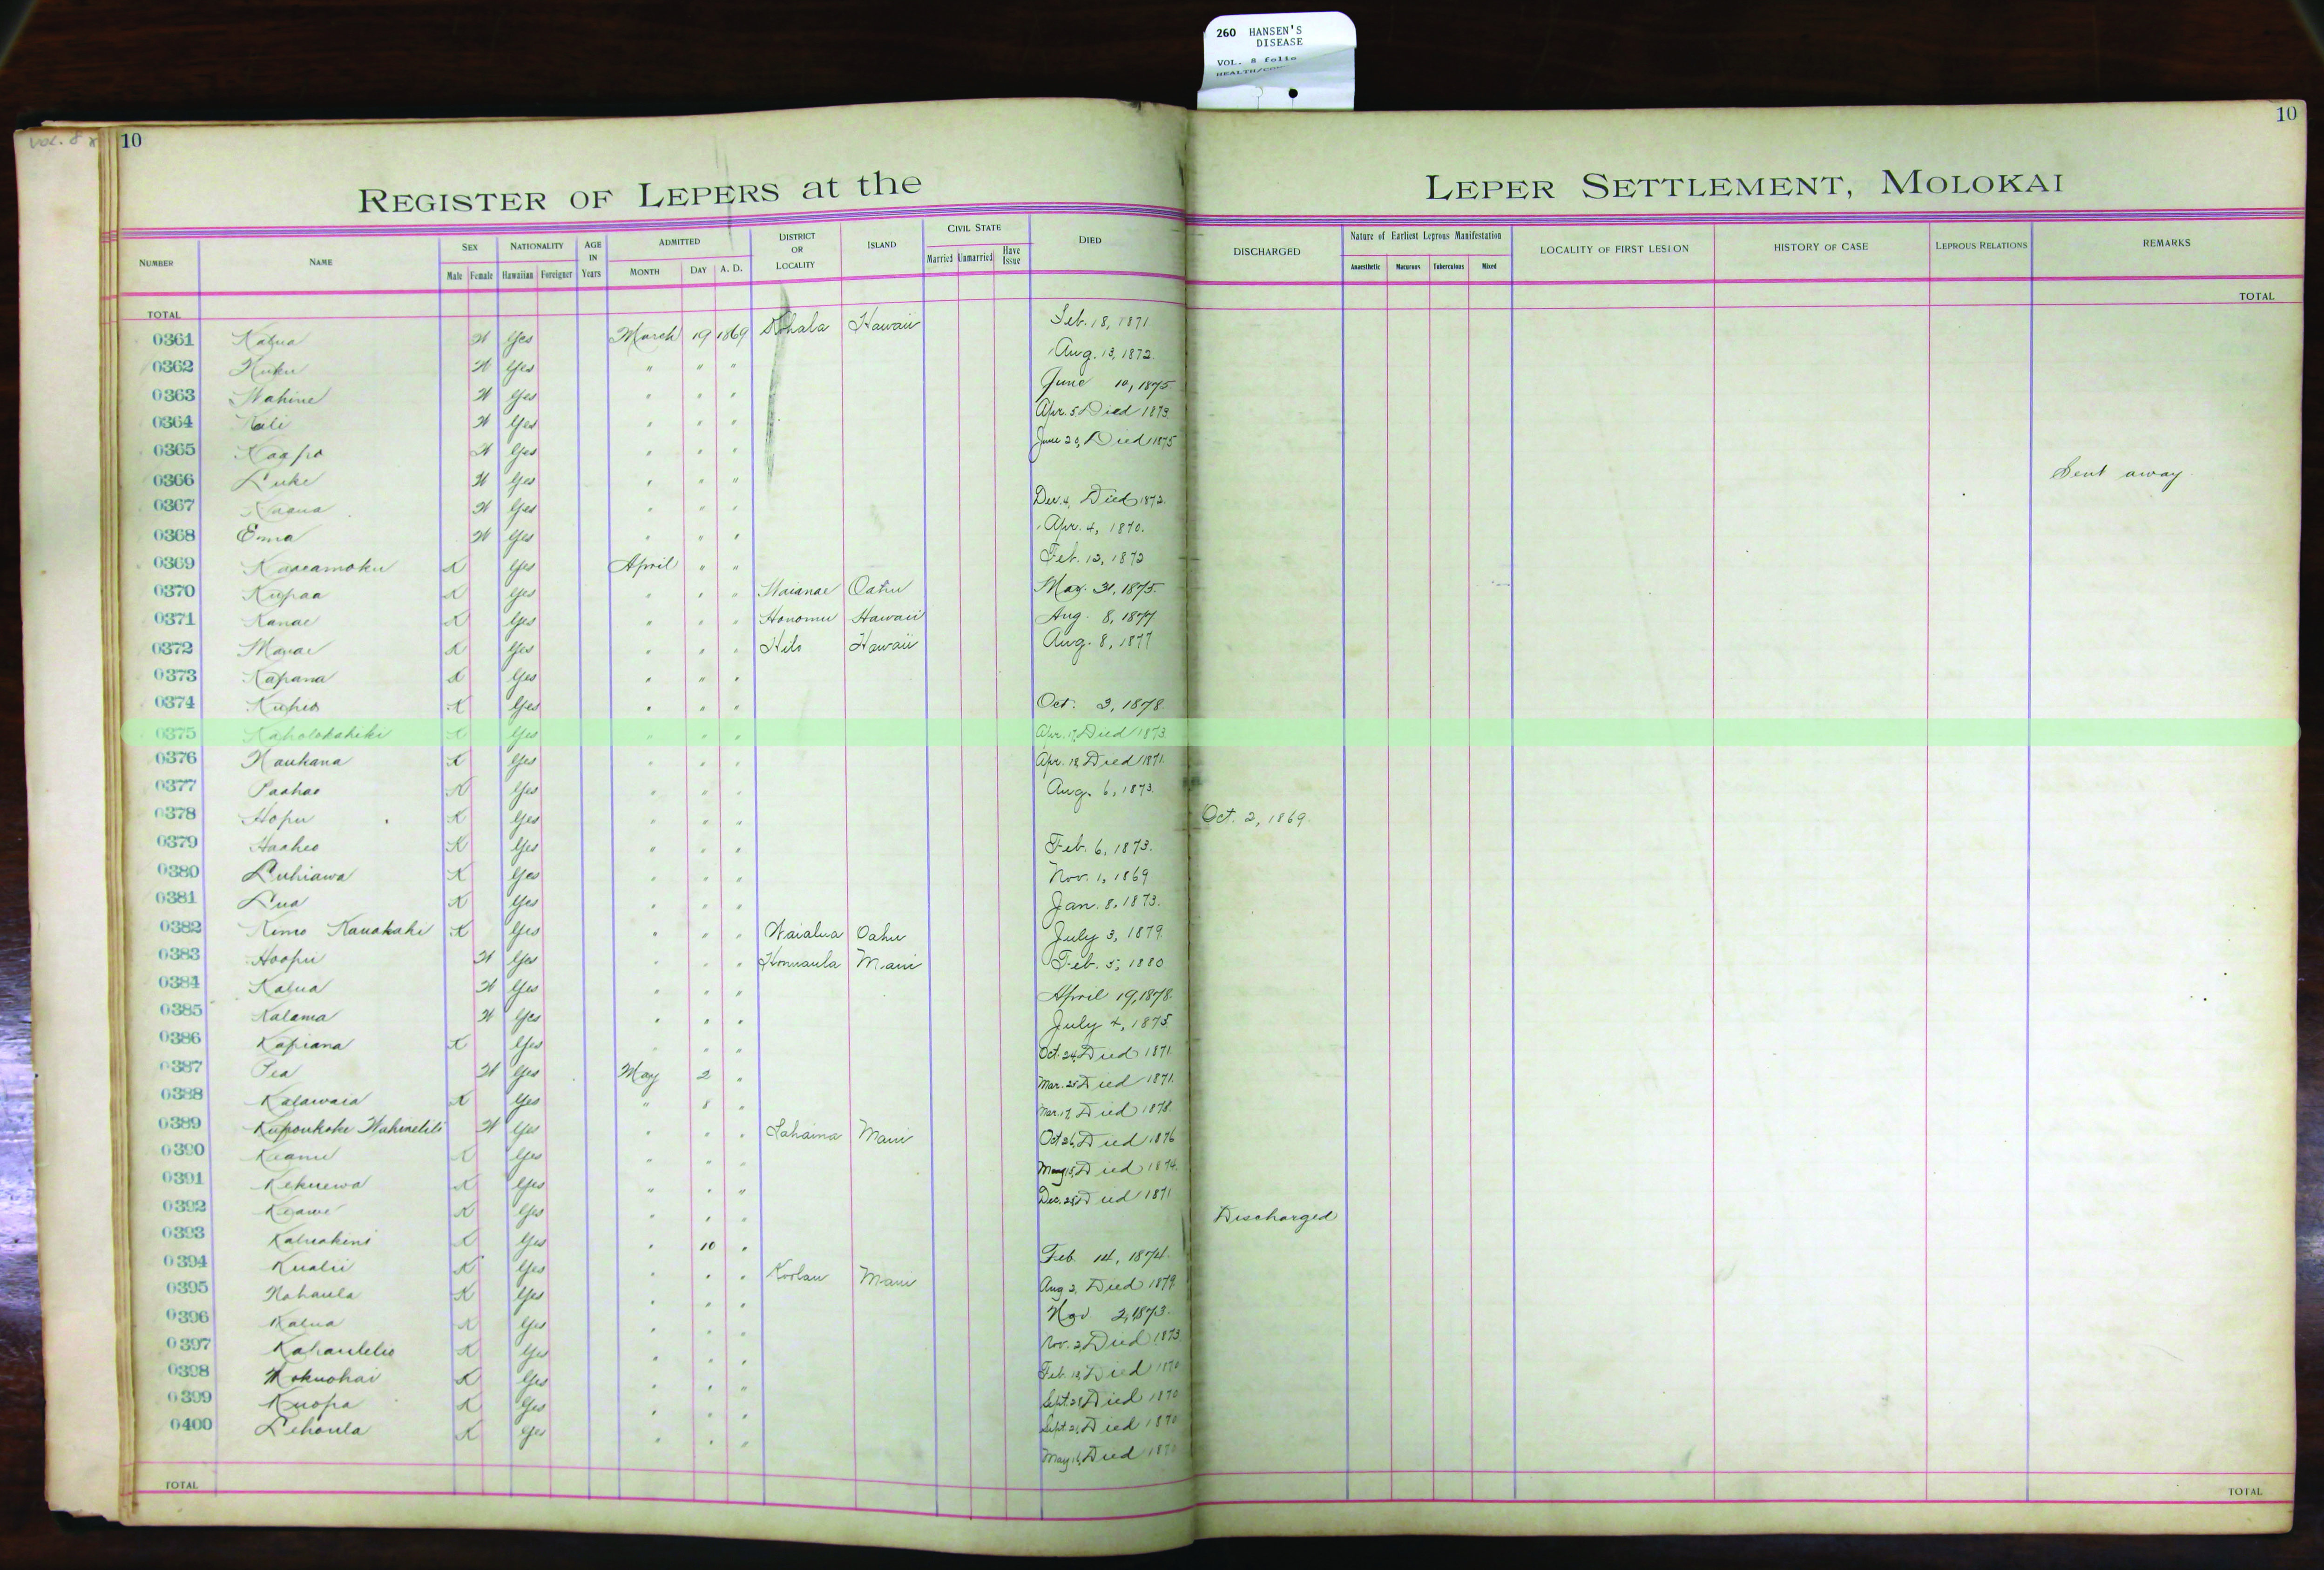 260 HANSEN'S
DISEASE
VOL. 8 folio
VOL. 8
10
10
REGISTER OF LEPERS at the LEPER SETTLEMENT, MOLOKAI
NUMBER NAME SEX Male Female NATIONALITY Hawaiian Foreigner AGE IN Years ADMITTED MONTH DAY A. D. DISTRICT OR LOCALITY ISLAND CIVIL STATE Married Unmarried Have Issue DIED DISCHARGED Nature of Earliest Leprous Manifestation Anaesthetic Macurous Tuberculous Mixed LOCALITY OF FIRST LESION HISTORY OF CASE LEPROUS RELATIONS REMARKS
TOTAL TOTAL
0361 Kalua W Yes March 19 1869 Kohala Hawaii Feb. 18, 1871
0362 Kuku W Yes " " " Aug. 13, 1872.
0363 Wahine W Yes " " " June 10, 1875
0364 Kali W Yes " " " Apr. 5 Died 1873.
0365 Kaapo W Yes " " " June 20, Died 1875
0366 Luke W Yes " " " Sent away
0367 W Yes " " " Dec. 4, Died 1872.
0368 Emma W Yes " " " Apr. 4, 1870.
0369 Kaaeamoku K Yes April " " Feb. 12, 1872
0370 Kupaa K Yes " " " Waianae Oahu May. 31, 1875.
0371 Kanae K Yes " " " Honomu Hawaii Aug. 8, 1877
0372 Manae K Yes " " " Hilo Hawaii Aug. 8, 1877
0373 Kapana K Yes " " "
0374 Kuheo K Yes " " " Oct. 3, 1878.
0375 Kaholokahiki K Yes " " " Apr. 17, Died 1873.
0376 Naukana K Yes " " " Apr. 18 Died 1871.
0377 Paahao K Yes " " " Aug. 6, 1873.
0378 Hopu K Yes " " " Oct. 2, 1869.
0379 Haaheo K Yes " " " Feb. 6, 1873.
0380 Luhiawa K Yes " " " Nov. 1, 1869
0381 Lua K Yes " " " Jan. 8, 1873.
0382 Kimo Kauakahi K Yes " " " Waialua Oahu July 3, 1879.
0383 Hoopii W Yes " " " Honuaula Maui Feb. 5, 1880
0384 Kalua W Yes " " " April 19, 1878.
0385 Kalama W Yes " " " July 4, 1875.
0386 Kapiana K Yes " " " Oct. 24, Died 1871.
0387 Pea W Yes May 2 " Mar. 25 Died 1871.
0388 Kalawaia K Yes " 8 " Mar. 17, Died 1878.
0389 Kupoukoke Wahinelili W Yes " " " Lahaina Maui Oct 26, Died 1876
0390 Keanu K Yes " " " May 15, Died 1874.
0391 Kekuewa K Yes " " " Dec. 28 Died 1871
0392 Keawe K Yes " " " Discharged
0393 Kaheakini K Yes " 10 " Feb. 14, 1874.
0394 Kualii K Yes " " " Koolau Maui Aug 2, Died 1879.
0395 Nohaula K Yes " " " Nov 2, 1873.
0396 Kalua K Yes " " " Nov. 2, Died 1873
0397 Kahaulelio K Yes " " " Feb. 18, Died 1870
0398 Mokuohai K Yes " " " Sept. 28 Died 1870
0399 Kuopa K Yes " " " Sept. 21, Died 1870
0400 Lehoula K Yes " " " May 16, Died 1870
TOTAL TOTAL